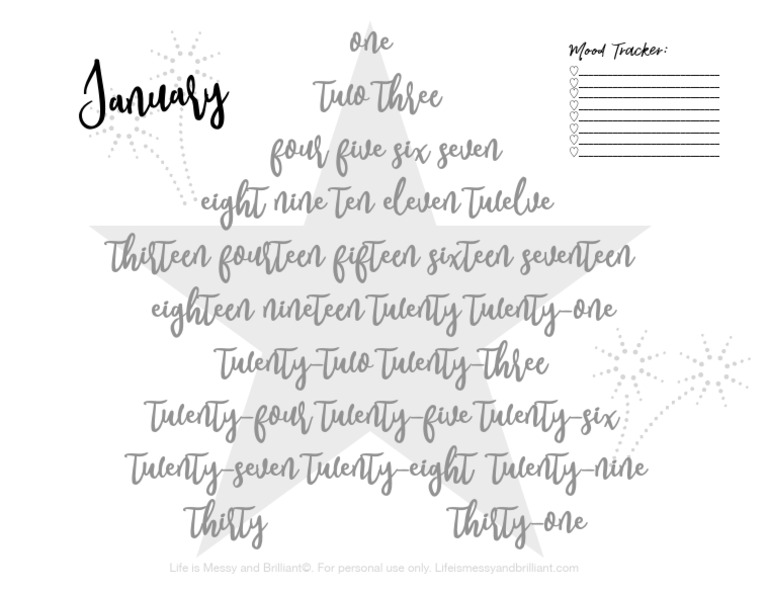 January
Mood Tracker:
one
Two Three
four five six seven
eight nine Ten eleven Twelve
Thirteen fourteen fifteen sixteen seventeen
eighteen nineteen Twenty Twenty-one
Twenty-Two Twenty-Three
Twenty-four Twenty-five Twenty-six
Twenty-seven Twenty-eight Twenty-nine
Thirty Thirty-one
Life is Messy and Brilliant©. For personal use only. Lifeismessyandbrilliant.com